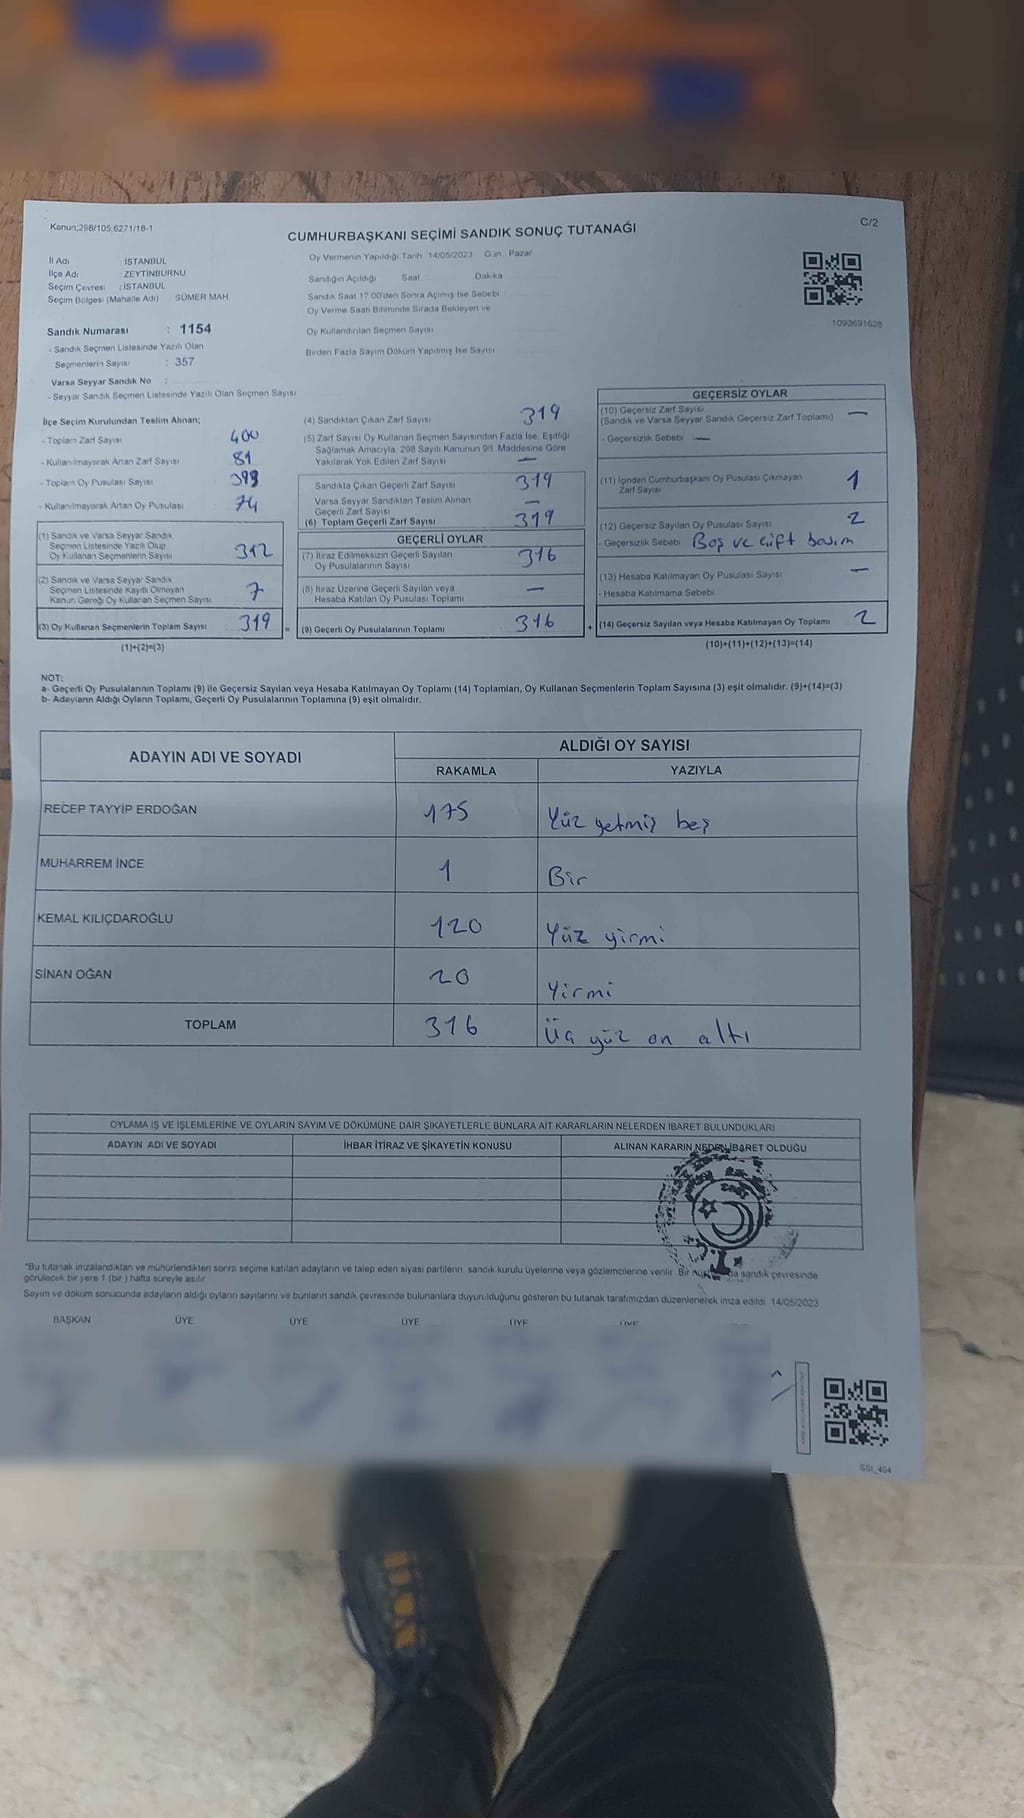 Kanun;298/105,6271/18-1
C/2
CUMHURBAŞKANI SEÇİMİ SANDIK SONUÇ TUTANAĞI
İl Adı : İSTANBUL
İlçe Adı : ZEYTİNBURNU
Seçim Çevresi : İSTANBUL
Seçim Bölgesi (Mahalle Adı) : SÜMER MAH
Sandık Numarası : 1154
- Sandık Seçmen Listesinde Yazılı Olan
Seçmenlerin Sayısı : 357
Varsa Seyyar Sandık No :
- Seyyar Sandık Seçmen Listesinde Yazılı Olan Seçmen Sayısı
Oy Vermenin Yapıldığı Tarih 14/05/2023 Gün Pazar
Sandığın Açıldığı Saat Dakika
Sandık Saat 17.00'den Sonra Açımış İse Sebebi
Oy Verme Saati Bitiminde Sırada Bekleyen ve
Oy Kullandırılan Seçmen Sayısı
Birden Fazla Sayım Döküm Yapılmış İse Sayısı
1093691628
İlçe Seçim Kurulundan Teslim Alınan;
- Toplam Zarf Sayısı 400
- Kullanılmayarak Artan Zarf Sayısı 81
- Toplam Oy Pusulası Sayısı
- Kullanılmayarak Artan Oy Pusulası 74
(1) Sandık ve Varsa Seyyar Sandık
Seçmen Listesinde Yazılı Olup
Oy Kullanan Seçmenlerin Sayısı 312
(2) Sandık ve Varsa Seyyar Sandık
Seçmen Listesinde Kayıtlı Olmayan
Kanun Gereği Oy Kullanan Seçmen Sayısı 7
(3) Oy Kullanan Seçmenlerin Toplam Sayısı 319 =
(1)+(2)=(3)
(4) Sandıktan Çıkan Zarf Sayısı 319
(5) Zarf Sayısı Oy Kullanan Seçmen Sayısından Fazla İse, Eşitliği
Sağlamak Amacıyla, 298 Sayılı Kanunun 98. Maddesine Göre
Yakılarak Yok Edilen Zarf Sayısı —
Sandıkta Çıkan Geçerli Zarf Sayısı 319
Varsa Seyyar Sandıktan Teslim Alınan
Geçerli Zarf Sayısı —
(6) Toplam Geçerli Zarf Sayısı 319
GEÇERLİ OYLAR
(7) İtiraz Edilmeksizin Geçerli Sayılan
Oy Pusulasının Sayısı 316
(8) İtiraz Üzerine Geçerli Sayılan veya
Hesaba Katılan Oy Pusulası Toplamı —
(9) Geçerli Oy Pusulalarının Toplamı 316 +
GEÇERSİZ OYLAR
(10) Geçersiz Zarf Sayısı
(Sandık ve Varsa Seyyar Sandık Geçersiz Zarf Toplamı) —
- Geçersizlik Sebebi —
(11) İçinden Cumhurbaşkanı Oy Pusulası Çıkmayan
Zarf Sayısı 1
(12) Geçersiz Sayılan Oy Pusulası Sayısı 2
- Geçersizlik Sebebi Boş ve çift basım
(13) Hesaba Katılmayan Oy Pusulası Sayısı —
- Hesaba Katılmama Sebebi
(14) Geçersiz Sayılan veya Hesaba Katılmayan Oy Toplamı 2
(10)+(11)+(12)+(13)=(14)
NOT:
a- Geçerli Oy Pusulalarının Toplamı (9) ile Geçersiz Sayılan veya Hesaba Katılmayan Oy Toplamı (14) Toplamları, Oy Kullanan Seçmenlerin Toplam Sayısına (3) eşit olmalıdır. (9)+(14)=(3)
b- Adayların Aldığı Oyların Toplamı, Geçerli Oy Pusulalarının Toplamına (9) eşit olmalıdır.
ADAYIN ADI VE SOYADI ALDIĞI OY SAYISI
RAKAMLA YAZIYLA
RECEP TAYYİP ERDOĞAN 175 Yüz yetmiş beş
MUHARREM İNCE 1 Bir
KEMAL KILIÇDAROĞLU 120 Yüz yirmi
SİNAN OĞAN 20 Yirmi
TOPLAM 316 Üç yüz on altı
OYLAMA İŞ VE İŞLEMLERİNE VE OYLARIN SAYIM VE DÖKÜMÜNE DAİR ŞİKAYETLERLE BUNLARA AİT KARARLARIN NELERDEN İBARET BULUNDUKLARI
ADAYIN ADI VE SOYADI İHBAR İTİRAZ VE ŞİKAYETİN KONUSU ALINAN KARARIN NEDEN İBARET OLDUĞU
*Bu tutanak imzalandıktan ve mühürlendikten sonra seçime katılan adayların ve talep eden siyasi partilerin sandık kurulu üyelerine veya gözlemcilerine verilir. Bir sandık çevresinde
görülecek bir yere 1 (bir) hafta süreyle asılır
Sayım ve döküm sonucunda adayların aldığı oyların sayılarını ve bunların sandık çevresinde bulunanlara duyurulduğunu gösteren bu tutanak tarafımızdan düzenlenerek imza edildi. 14/05/2023
BAŞKAN ÜYE ÜYE ÜYE ÜYE ÜYE
SSt_404